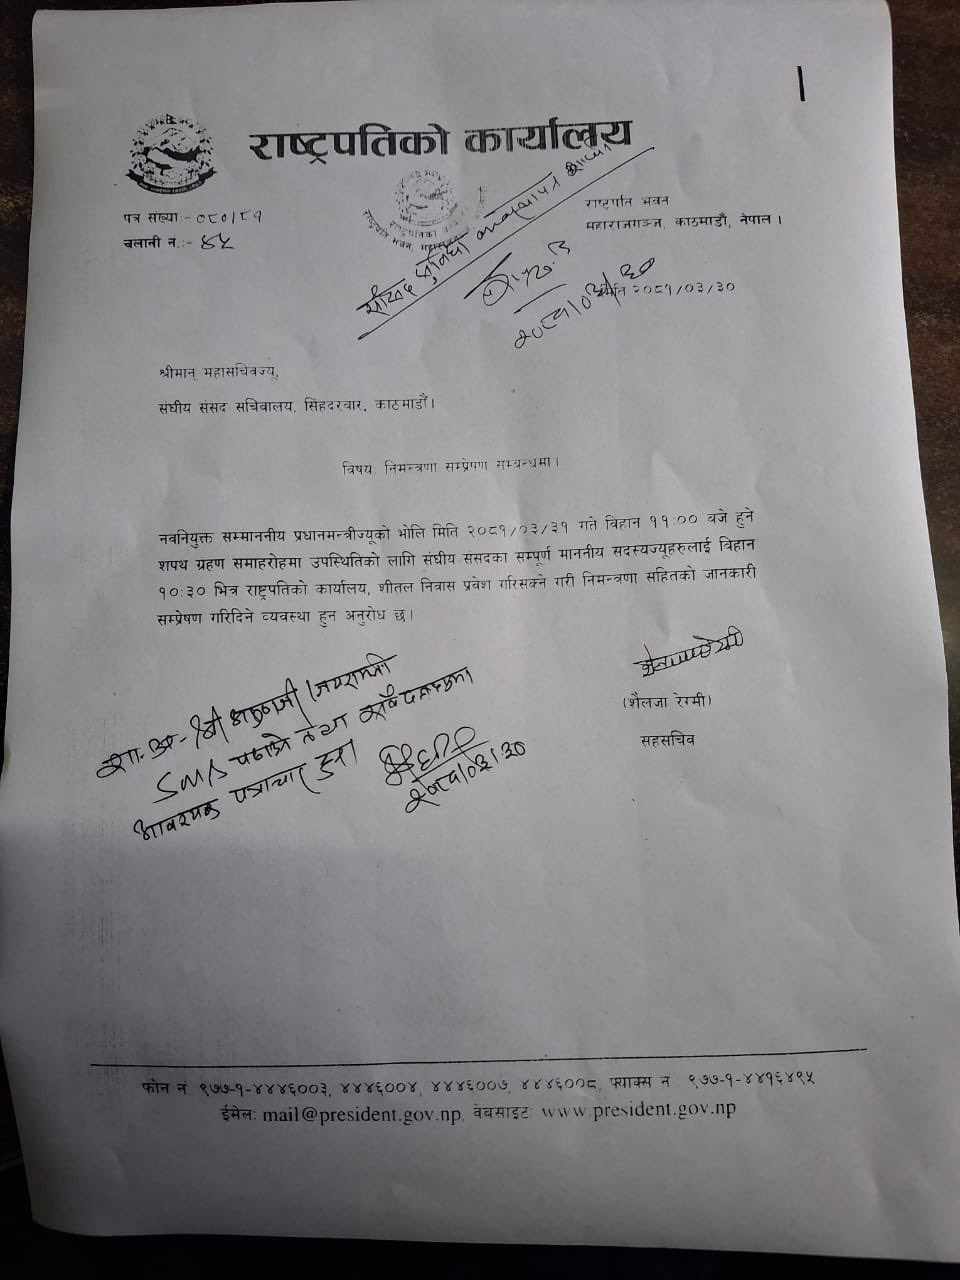 राष्ट्रपतिको कार्यालय
पत्र संख्याः- ०८०/८१
चलानी नं.:- ४५
राष्ट्रपति भवन
महाराजगञ्ज, काठमाडौं, नेपाल ।
मिति २०८१/०३/३०
श्रीमान् महासचिवज्यू,
संघीय संसद सचिवालय, सिंहदरवार, काठमाडौं ।
विषय निमन्त्रणा सम्प्रेषण सम्बन्धमा ।
नवनियुक्त सम्माननीय प्रधानमन्त्रीज्यूको भोलि मिति २०८१/०३/३१ गते विहान ११:०० बजे हुने
शपथ ग्रहण समाहरोहमा उपस्थितिको लागि संघीय संसदका सम्पूर्ण माननीय सदस्यज्यूहरुलाई विहान
१०:३० भित्र राष्ट्रपतिको कार्यालय, शीतल निवास प्रवेश गरिसक्ने गरी निमन्त्रणा सहितको जानकारी
सम्प्रेषण गरिदिने व्यवस्था हुन अनुरोध छ ।
(शैलजा रेग्मी)
सहसचिव
SMS पठाउने तथा
आवश्यक पत्राचार
२०८१/०३/३०
फोन नं ९७७-१-४४४६००३, ४४४६००४, ४४४६००७, ४४४६००८, फ्याक्स न ९७७-१-४४१६४९५
ईमेल: mail@president.gov.np, वेबसाइट: www.president.gov.np